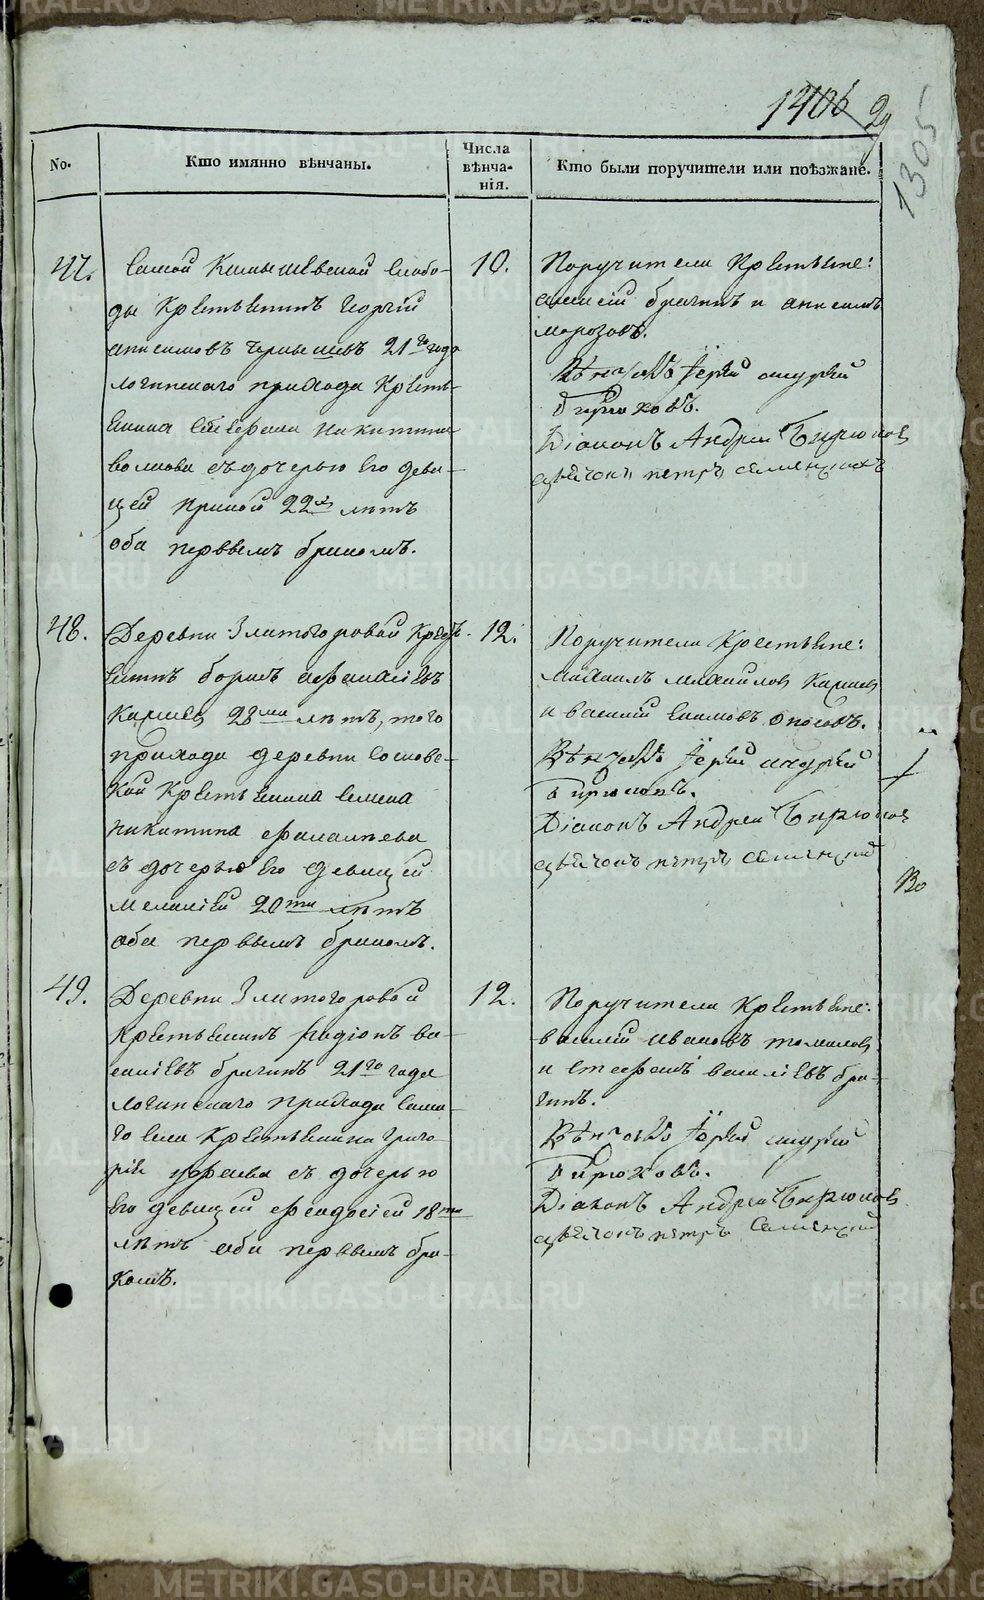 1406 29
1305
No.
Кто имянно вѣнчаны.
Числа
вѣнча-
нія.
Кто были поручители или поѣзжане.
47.
Самой Камышевской слобо-
ды Крестьянинъ Георгій
анисимовъ 21го года
логинскаго прихода Кресть-
янина никитина
волкова съ дочерью его деви-
цей 22х лѣтъ
оба первымъ бракомъ.
10.
Поручители Крестьяне:
алексій брагинъ и анисимъ
морозовъ.
Вѣнчалъ Іерей андрей
бирюковъ.
Діаконъ Андрей Бирюковъ
петръ
48.
Деревни Златогоровой Кресть-
янинъ борисъ афанасіевъ
Карпиев 28ми лѣтъ, того
прихода деревни Соснов-
кой Крестьянина Семена
никитина
съ дочерью его девицей
меланіей 20ти лѣтъ
оба первымъ бракомъ.
12.
Поручители Крестьяне:
михаилъ михаиловъ
и василий Екимовъ
Вѣнчалъ Іерей андрей
бирюковъ.
Діаконъ Андрей Бирюковъ
петръ
Во
49.
Деревни Златогоровой
Крестьянинъ радіонъ ва-
силіевъ брагинъ 21го года
логинскаго прихода само-
го села Крестьянина григо-
рія съ дочерью
его девицей феодосіей 18ти
лѣтъ оба первымъ бра-
комъ.
12.
Поручители Крестьяне:
василий ивановъ томиловъ
и стефанъ василіевъ бра-
гинъ.
Вѣнчалъ Іерей андрей
бирюковъ.
Діаконъ Андрей Бирюковъ
петръ
METRIKI.GASO-URAL.RU